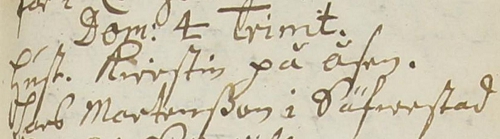 Dom. 4 Trinit.
Hust. Kirstin på Åsen.
Lars Martensson i Säfrestad